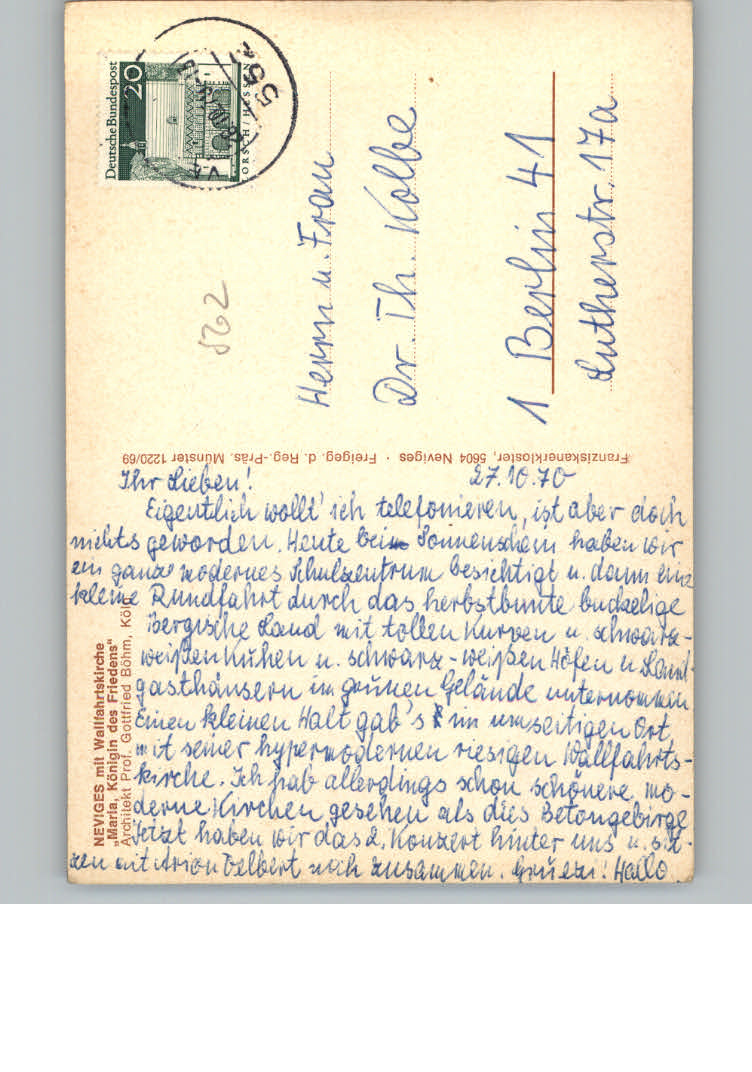 Deutsche Bundespost
20
LORSCH/HESSEN
Herrn u. Frau
Dr. Th. Kolbe
1 Berlin 41
Lutherstr. 17a
Franziskanerkloster, 5604 Neviges · Freigeg. d. Reg.-Präs. Münster 1220/69
NEVIGES mit Wallfahrtskirche
„Maria, Königin des Friedens“
Architekt Prof. Gottfried Böhm, Köl
27.10.70
Ihr Lieben!
Eigentlich wollt' ich telefonieren, ist aber doch
nichts geworden. Heute bei Sonnenschein haben wir
ein ganz modernes Schulzentrum besichtigt u. dann eine
kleine Rundfahrt durch das herbstbunte buckelige
Bergische Land mit tollen Kurven u. schwarz-
weißen Kühen u. schwarz-weißen Höfen u. Land-
gasthäusern im grünen Gelände unternommen
Einen kleinen Halt gab's im umseitigen Ort,
mit seiner hypermodernen riesigen Wallfahrts-
kirche. Ich hab allerdings schon schönere mo-
derne Kirchen gesehen als dies Betongebirge
Jetzt haben wir das 2. Konzert hinter uns u. sit-
zen mit noch zusammen. Gruezi! Hallo